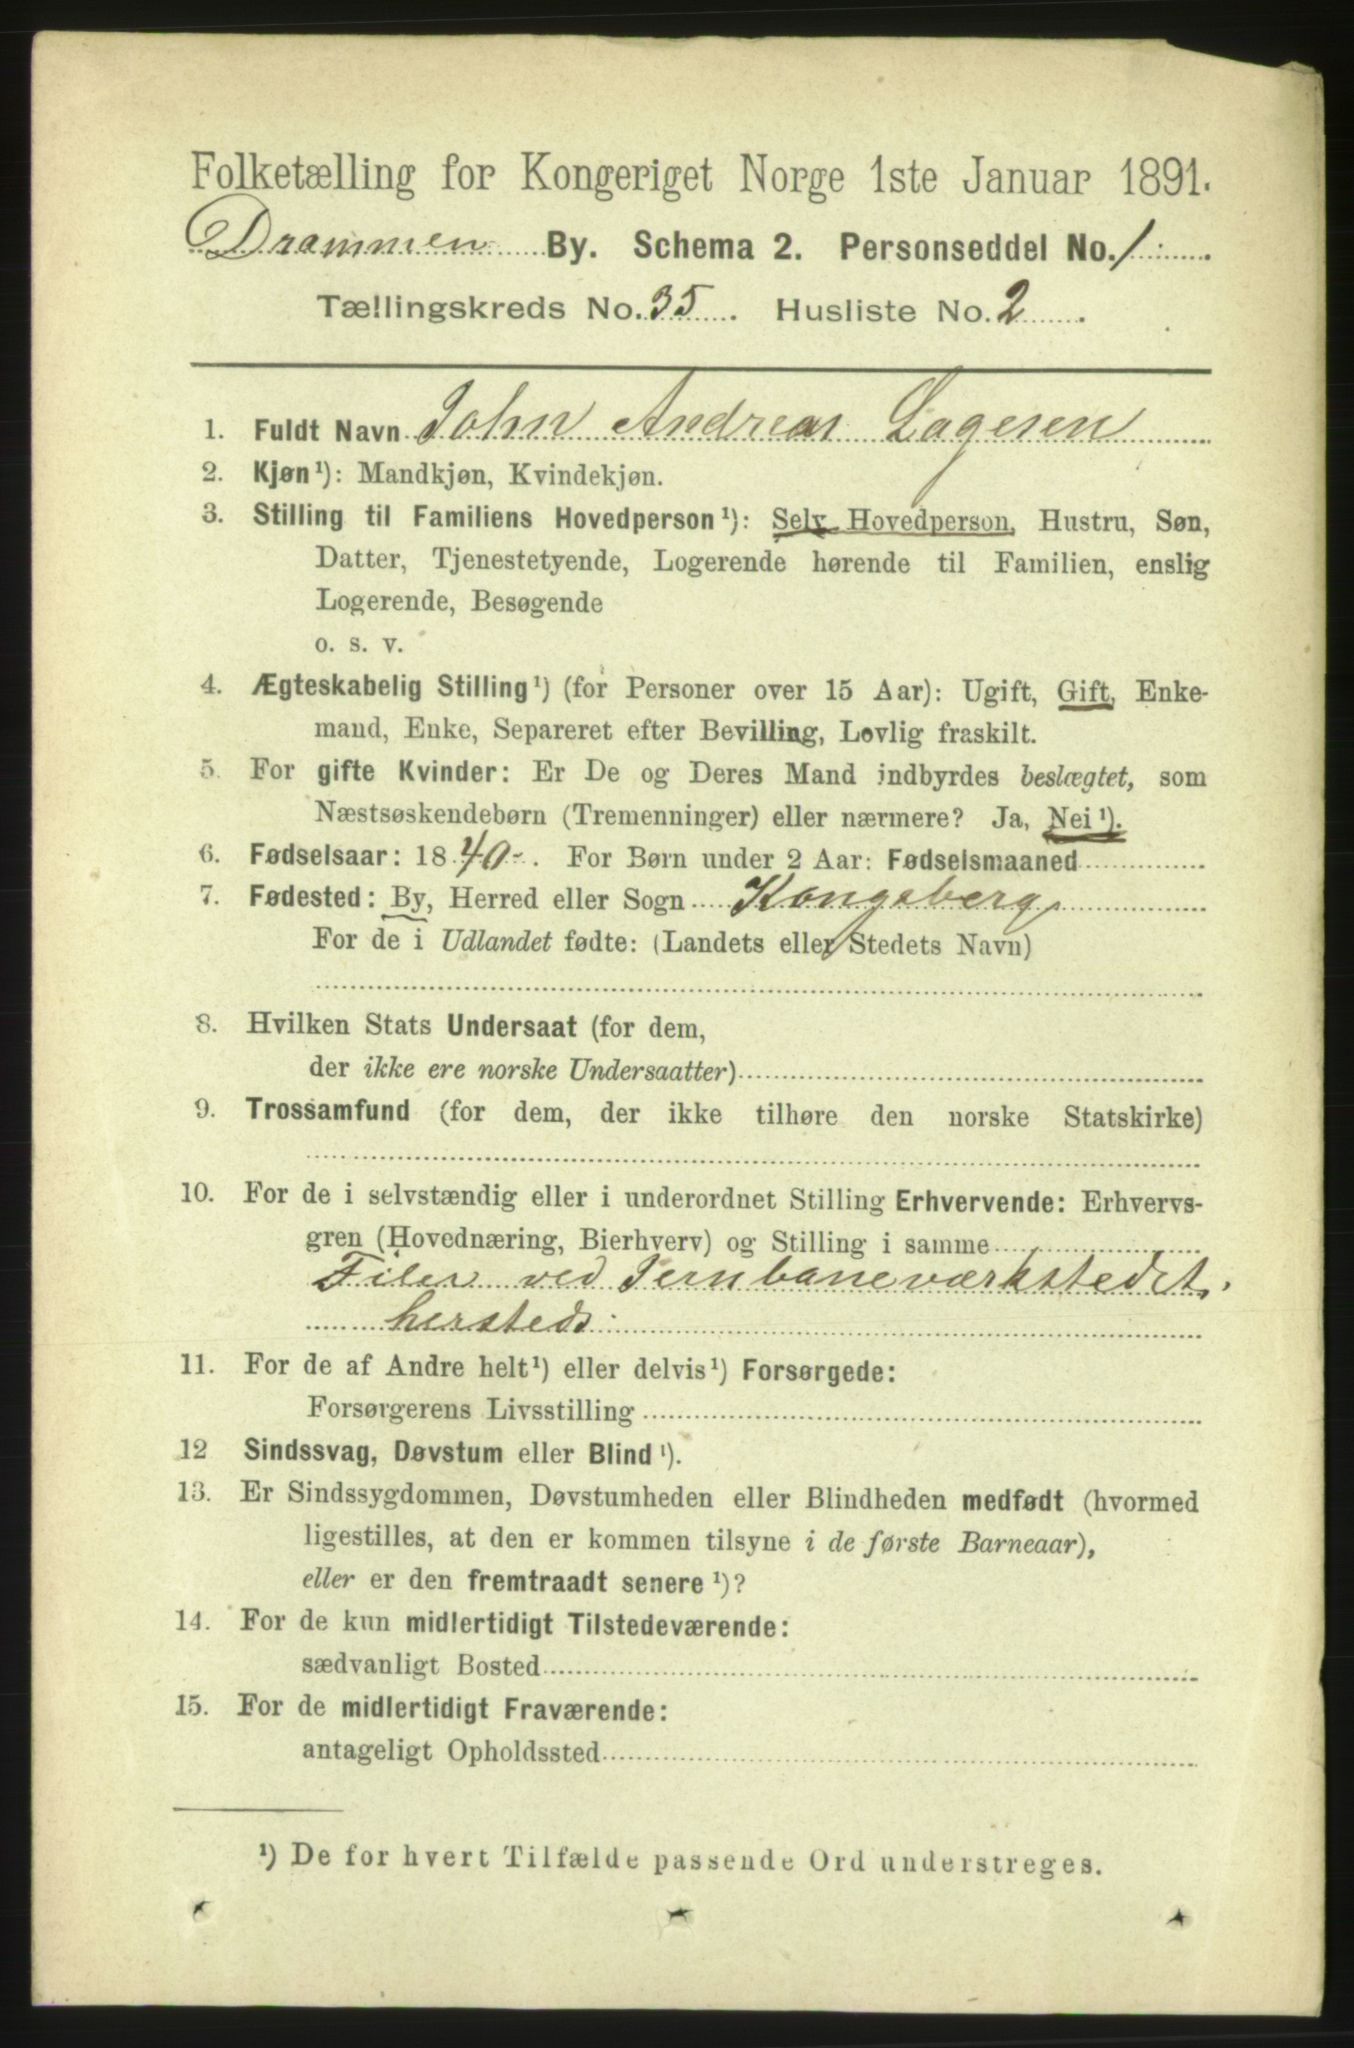 Folketælling for Kongeriget Norge 1ste Januar 1891.
Drammen By. Schema 2. Personseddel No. 1
Tællingskreds No. 35. Husliste No. 2.
1. Fuldt Navn John Andreas Lagesen
2. Kjøn¹): Mandkjøn, Kvindekjøn.
3. Stilling til Familiens Hovedperson¹): Selv Hovedperson, Hustru, Søn,
Datter, Tjenestetyende, Logerende hørende til Familien, enslig
Logerende, Besøgende
o. s. v.
4. Ægteskabelig Stilling¹) (for Personer over 15 Aar): Ugift, Gift, Enke-
mand, Enke, Separeret efter Bevilling, Lovlig fraskilt.
5. For gifte Kvinder: Er De og Deres Mand indbyrdes beslægtet, som
Næstsøskendebørn (Tremenninger) eller nærmere? Ja, Nei¹).
6. Fødselsaar: 1840. For Børn under 2 Aar: Fødselsmaaned
7. Fødested: By, Herred eller Sogn Kongsberg
For de i Udlandet fødte: (Landets eller Stedets Navn)
8. Hvilken Stats Undersaat (for dem,
der ikke ere norske Undersaatter)
9. Trossamfund (for dem, der ikke tilhøre den norske Statskirke)
10. For de i selvstændig eller i underordnet Stilling Erhvervende: Erhvervs-
gren (Hovednæring, Bierhverv) og Stilling i samme
Filer ved Jernbaneværkstedet
hersteds
11. For de af Andre helt¹) eller delvis¹) Forsørgede:
Forsørgerens Livsstilling
12 Sindssvag, Døvstum eller Blind¹).
13. Er Sindssygdommen, Døvstumheden eller Blindheden medfødt (hvormed
ligestilles, at den er kommen tilsyne i de første Barneaar),
eller er den fremtraadt senere¹)?
14. For de kun midlertidigt Tilstedeværende:
sædvanligt Bosted
15. For de midlertidigt Fraværende:
antageligt Opholdssted
¹) De for hvert Tilfælde passende Ord understreges.